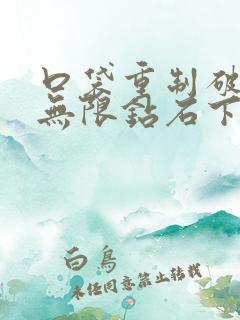 口袋重制破
無限鈷石下
白鳥
未经同意禁止转载